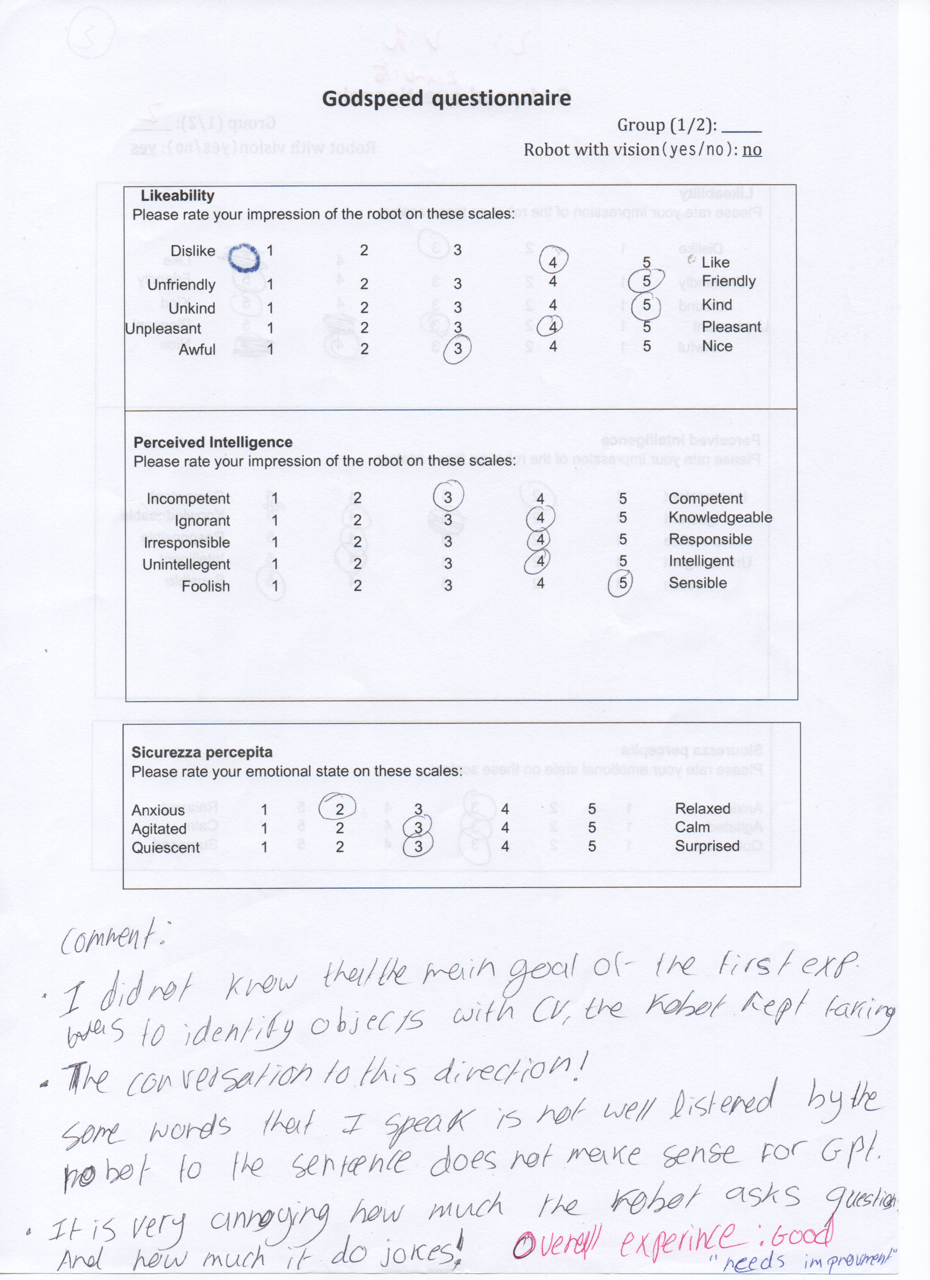 Godspeed questionnaire
Group (1/2): ____
Robot with vision(yes/no): no
Likeability
Please rate your impression of the robot on these scales:
Dislike 1 2 3 4 5 Like
Unfriendly 1 2 3 4 5 Friendly
Unkind 1 2 3 4 5 Kind
Unpleasant 1 2 3 4 5 Pleasant
Awful 1 2 3 4 5 Nice
Perceived Intelligence
Please rate your impression of the robot on these scales:
Incompetent 1 2 3 4 5 Competent
Ignorant 1 2 3 4 5 Knowledgeable
Irresponsible 1 2 3 4 5 Responsible
Unintellegent 1 2 3 4 5 Intelligent
Foolish 1 2 3 4 5 Sensible
Sicurezza percepita
Please rate your emotional state on these scales:
Anxious 1 2 3 4 5 Relaxed
Agitated 1 2 3 4 5 Calm
Quiescent 1 2 3 4 5 Surprised
Comment:
• I did not know that the main goal of the first exp.
was to identify objects with CV, the Robot kept taking
• The conversation to this direction!
some words that I speak is not well listered by the
robot to the sentence does not make sense for Gpt.
• It is very annoying how much the Robot asks question
And how much it do jokes!
Overall experince : Good
"needs improvment"